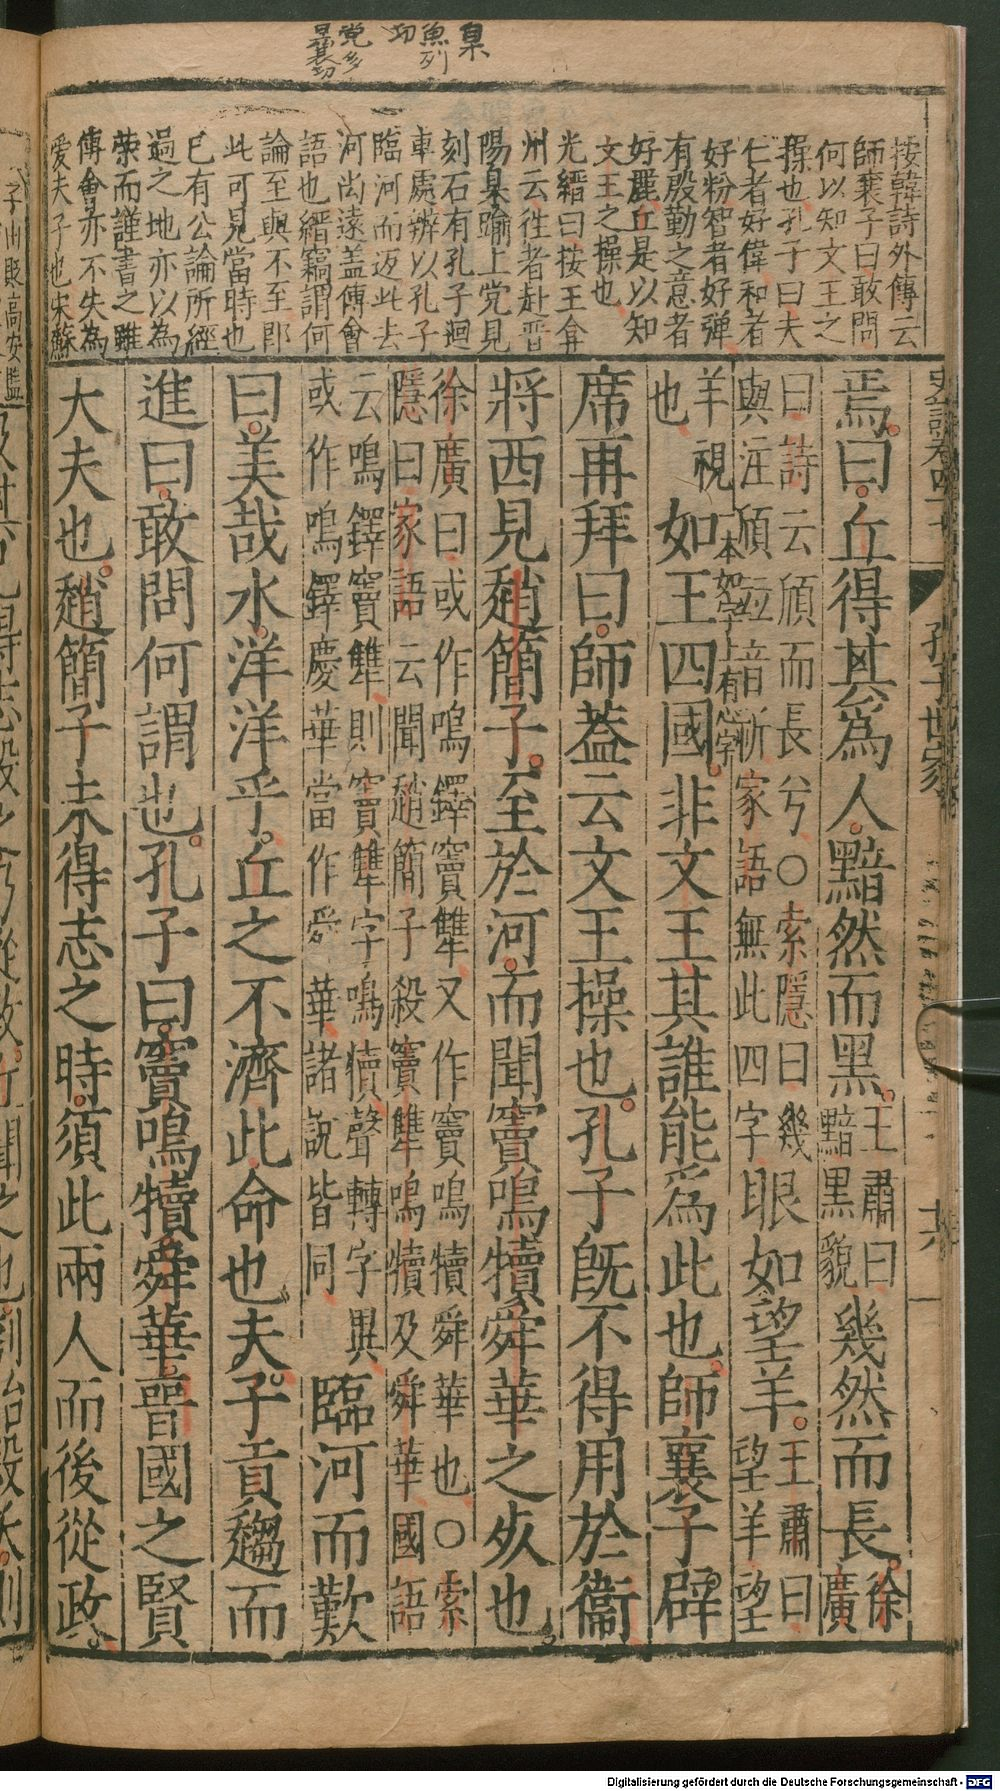 臬
魚列
切
党多
曩切
按韓詩外傳云
師襄子曰敢問
何以知文王之
操也孔子曰夫
仁者好偉和者
好粉智者好彈
有殷勤之意者
好麗丘是以知
文王之操也
光縉曰按王弇
州云徃者赴晋
陽臬踰上党見
刻石有孔子迴
車處辨以孔子
臨河而返此去
河尚遠盖傳會
語也縉竊謂何
論至與不至即
此可見當時也
已有公論所經
過之地亦以為
荣而謹書之雖
傳會亦不失為
愛夫子也宋蘇
焉曰丘得其為人黯然而黑王肅曰黯黒貌幾然而長徐廣
曰詩云頎而長兮〇索隱曰幾與注頎並音祈家語無此四字眼如望羊王肅曰望羊望
羊視也一本如字上有心字如王四國非文王其誰能爲此也師襄子辟
席再拜曰師蓋云文王操也孔子旣不得用於衞
將西見趙簡子至於河而聞竇鳴犢舜華之死也
徐廣曰或作鳴鐸竇犨又作竇鳴犢舜華也〇索
隱曰家語云聞趙簡子殺竇犨鳴犢及舜華國語
云鳴鐸竇犨則竇犨字鳴犢聲轉字異
或作鳴鐸慶華當作舜華諸說皆同臨河而歎
曰美哉水洋洋乎丘之不濟此命也夫子貢趨而
進曰敢問何謂也孔子曰竇鳴犢舜華晉國之賢
大夫也趙簡子未得志之時須此兩人而後從政
史記卷四十
孔子世家
十六
Digitalisierung gefördert durch die Deutsche Forschungsgemeinschaft - DFG